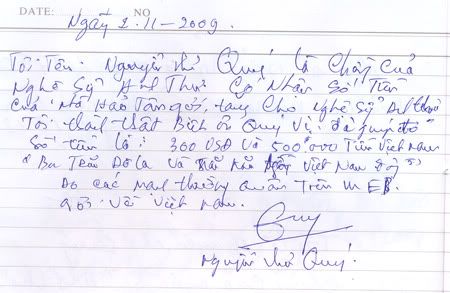 DATE: NO
Ngày 2-11-2009.
Tôi Tên: Nguyễn Quý là Chồng của
Nghệ Sỹ Anh Thư Có Nhận Số Tiền
của Nhà Hảo Tâm gởi, tặng Cho Nghệ Sỹ Anh Thư
Tôi thành thật Biết ơn Quý Vị đã giúp đỡ
Số tiền là: 300 USD Và 500'000 Tiền Việt Nam
Ba Trăm Đô la Và Năm Việt Nam
Do các mạnh thường quân Trên WEB.
gởi về Việt Nam.
Quý
Nguyễn Quý.